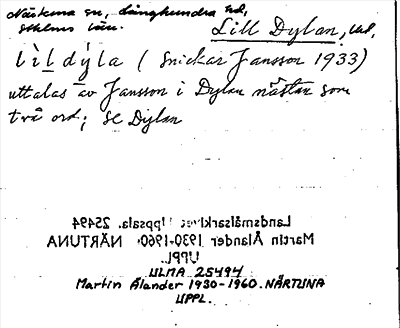 Närtuna sn, Långhundra hd,
sthlms län.
Lill Dylan, 
lìl dýla ( snickar Jansson 1933)
uttalas av Jansson i Dylan nästan som
två ord; se Dylan
Landsmålsarkivet Uppsala. 25494
Martin Ålander 1930-1960. NÄRTUNA
UPPL.
ULMA 25494
Martin Ålander 1930-1960. NÄRTUNA
UPPL.